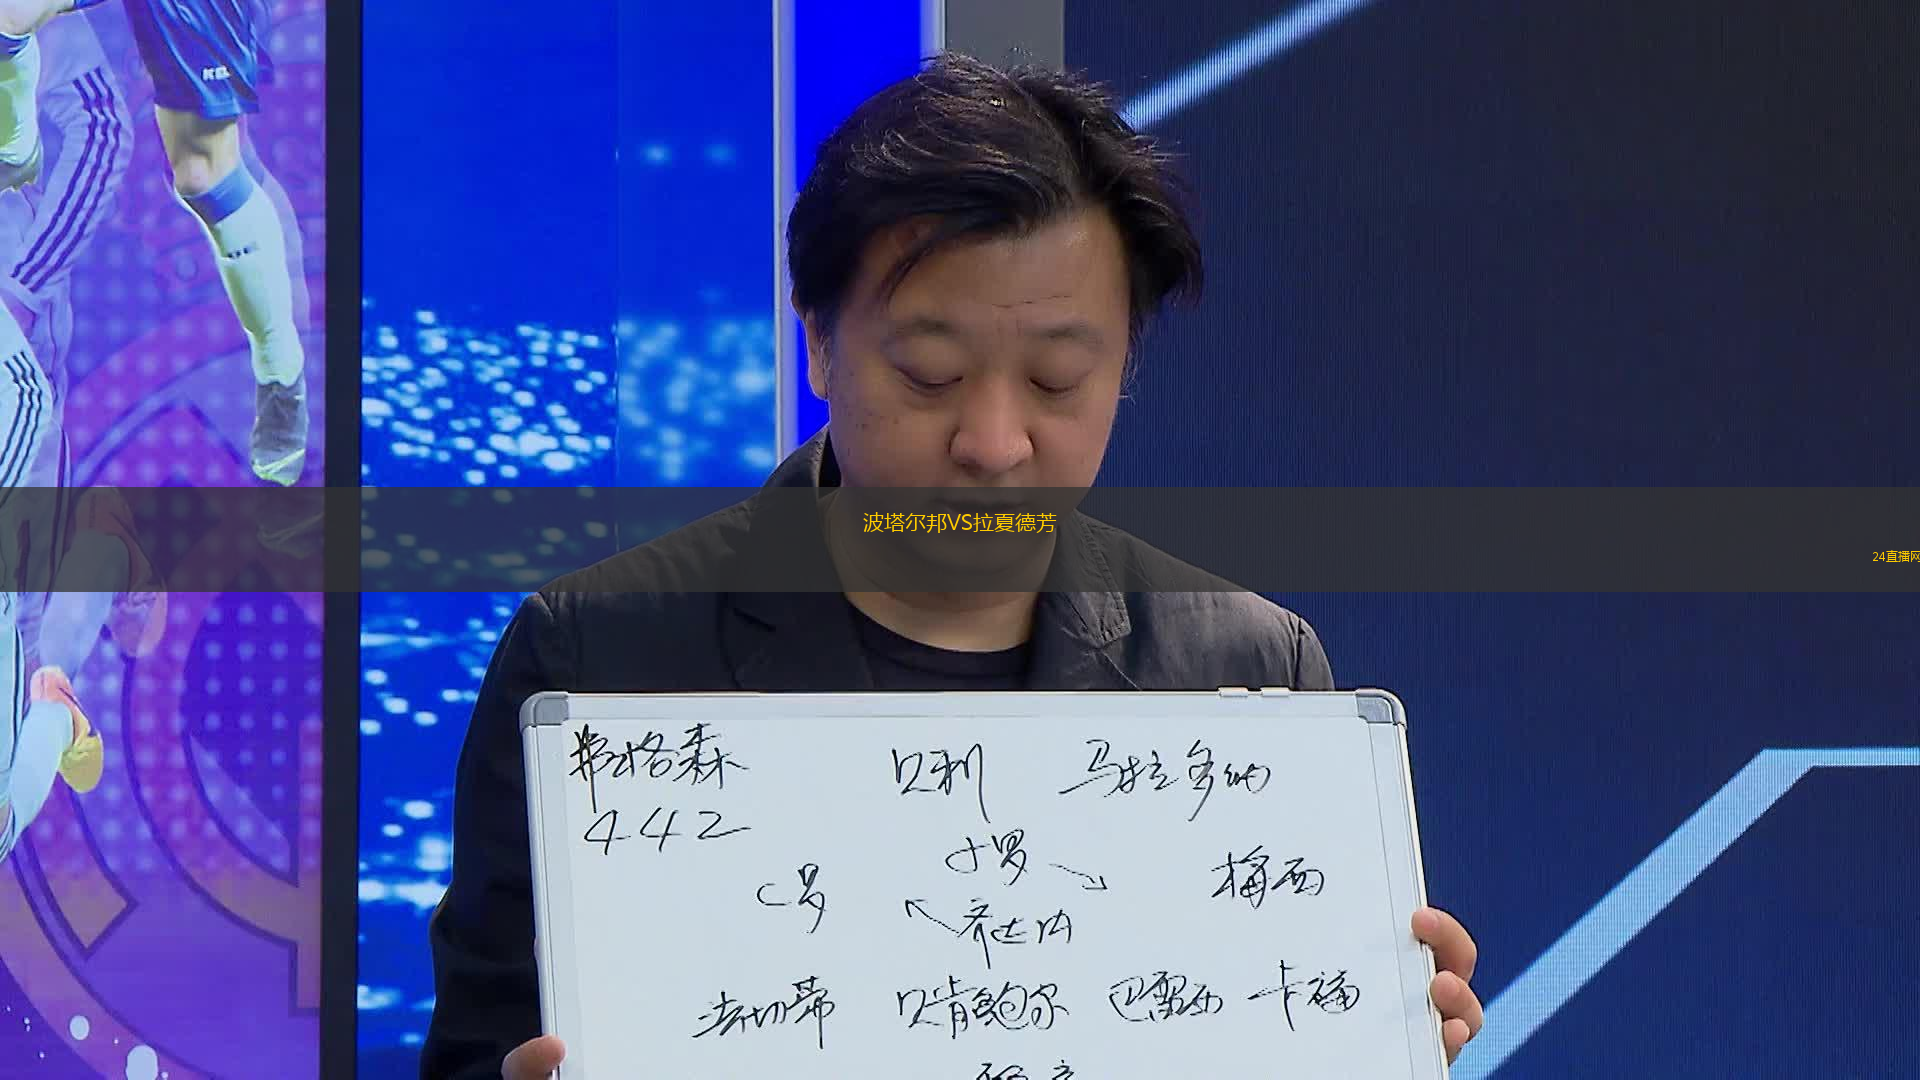 KEL
波塔尔邦VS拉夏德芳
24直播网
弗格森 贝利 马拉多纳
442
小罗
C罗 梅西
齐达内
法切蒂 贝肯鲍尔 巴雷西 卡福